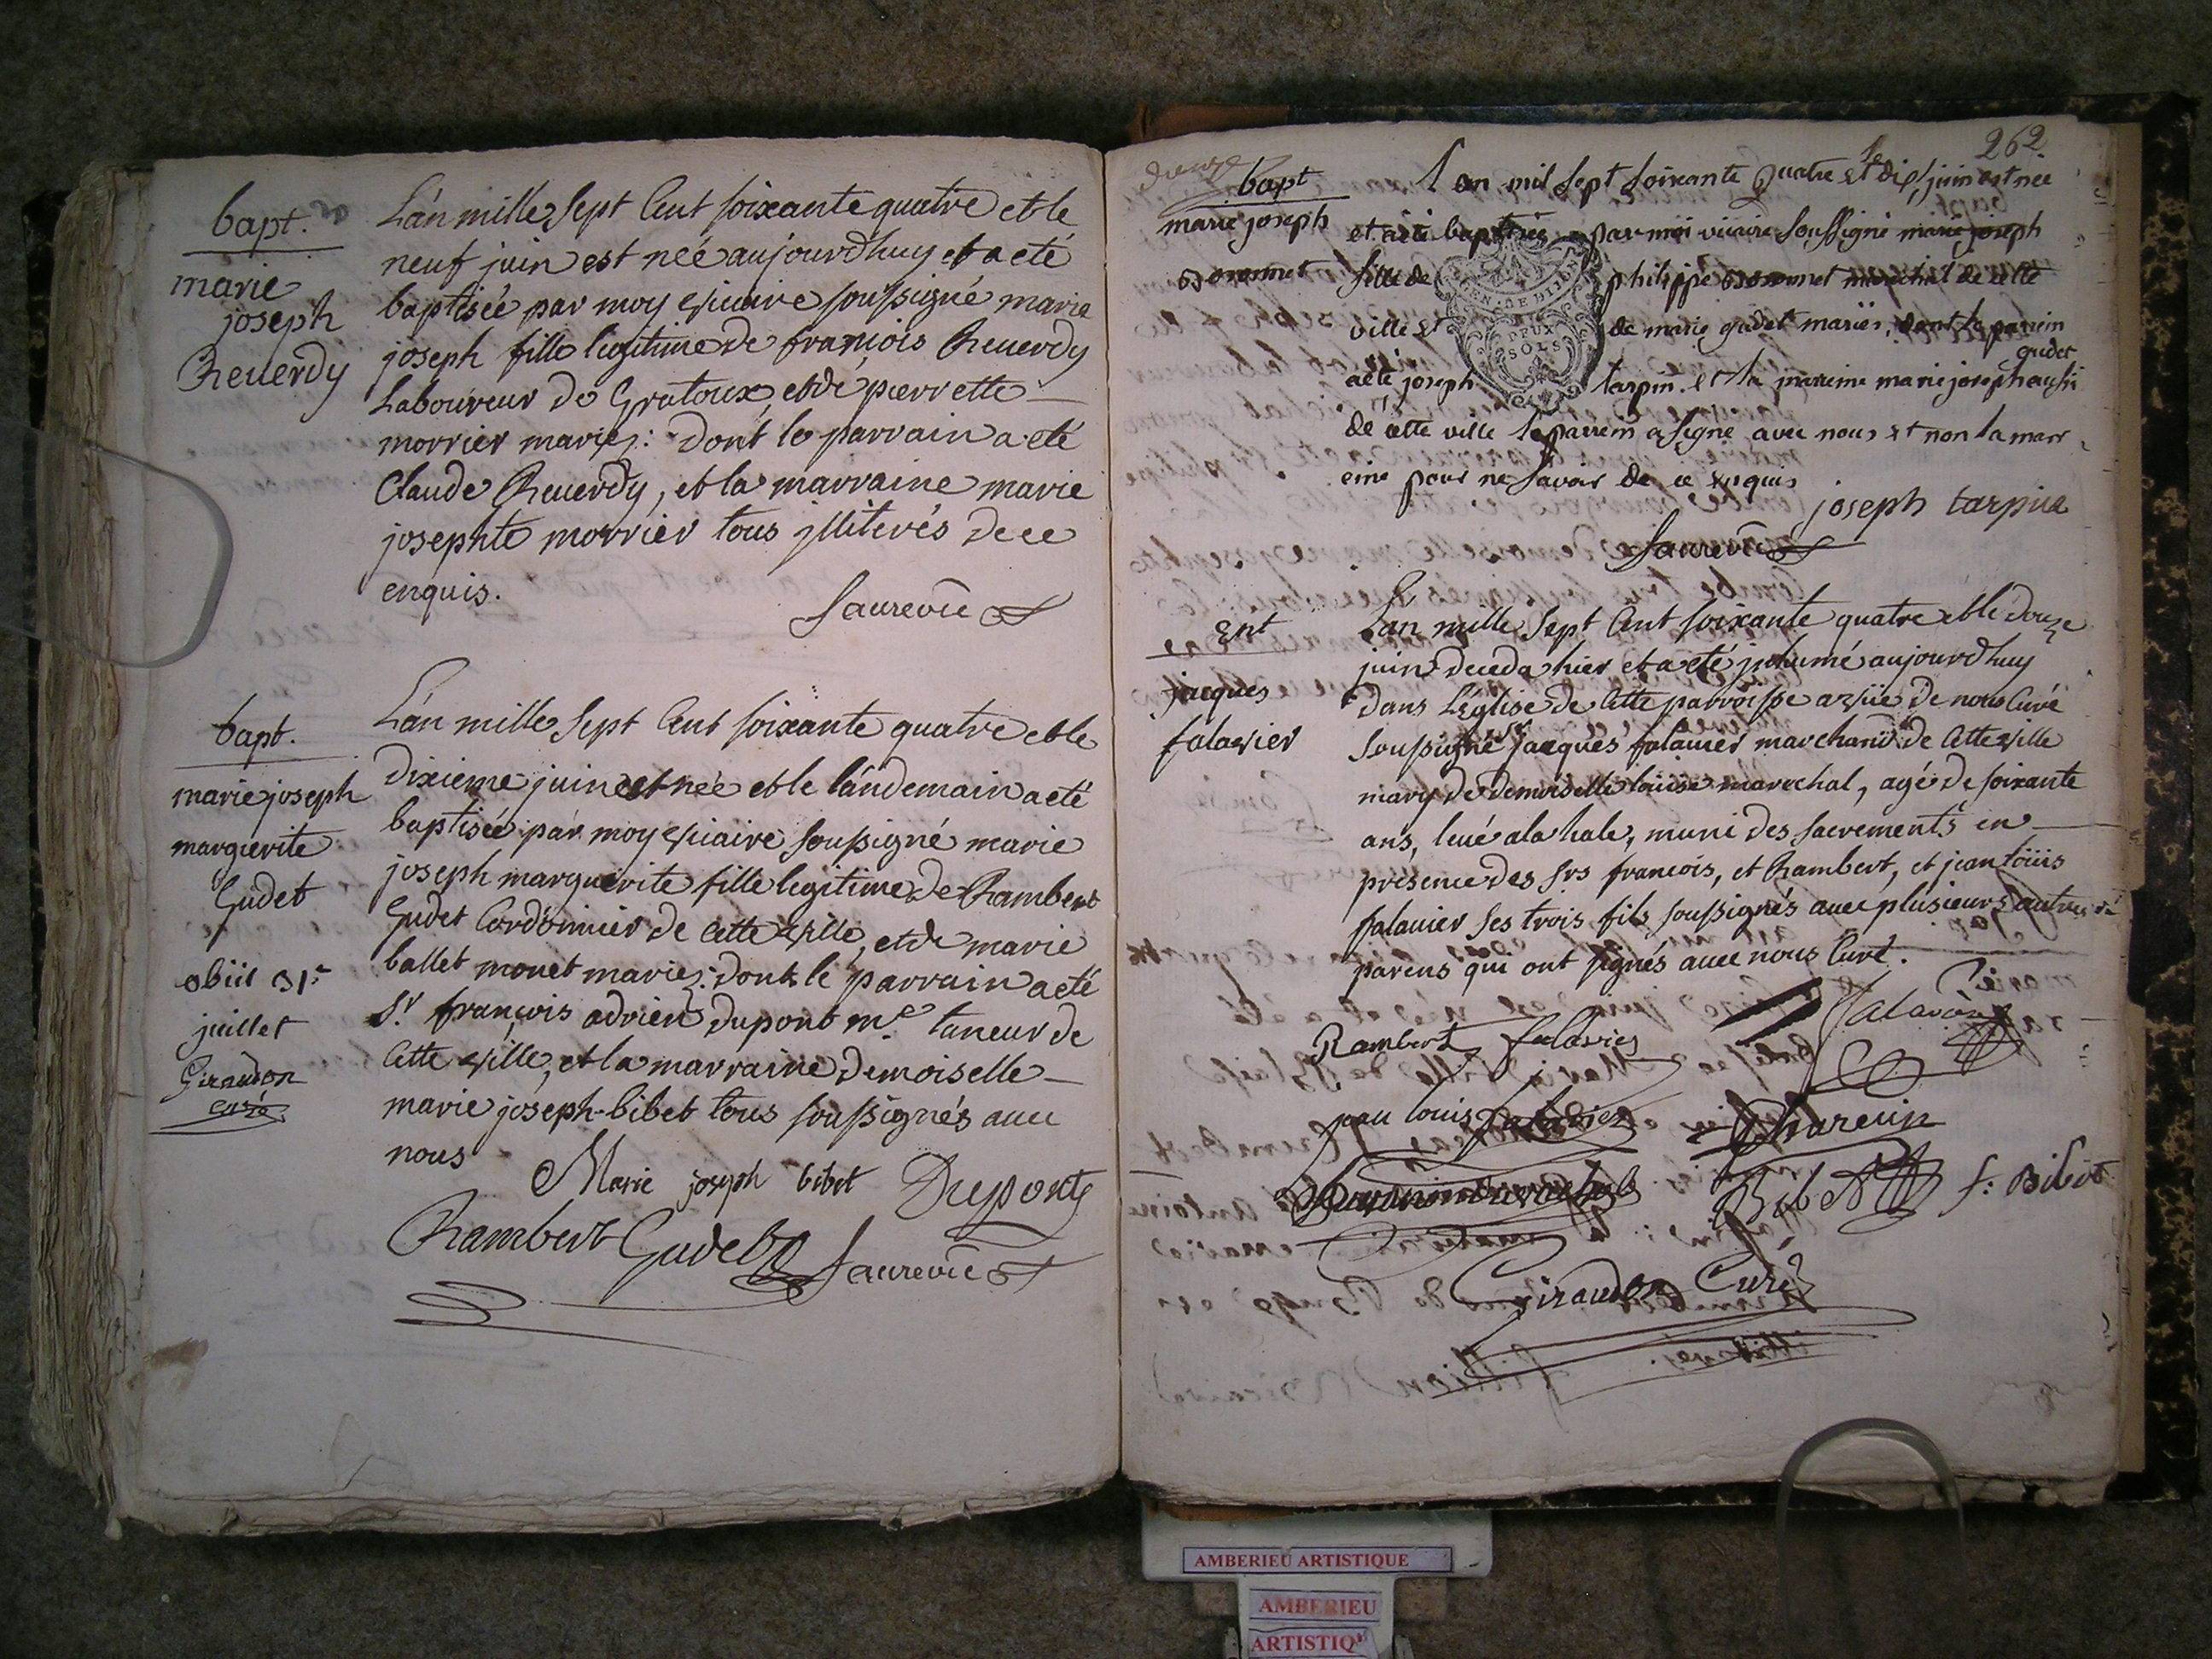 bapt.
marie
joseph
Reuerdy
L'an mille sept Cent soixante quatre et le
neuf juin est neé aujourd'huy et a eté
baptisée par moy vicaire soussigné marie
joseph fille legitime de françois Reuerdy
Laboureur de Gratoux et de pierrette
morrier mariez: Dont le parrain a eté
Claude Reuerdy, et la marraine marie
josephte morrier tous illiterés de ce
enquis.
bapt.
marie joseph
marguerite
Gudet
obiit 31e
juillet
Giraudon
curé
L'an mille sept Cent soixante quatre et le
Dixieme juin est neé et le landemain a eté
baptisée par moy vicaire soussigné marie
joseph marguerite fille legitime de Rambert
Gudet Cordonnier de Cette ville, et de marie
ballet mouet mariez: dont le parrain a eté
Sr. françois adrien Dupont me taneur de
Cette ville, et la marraine demoiselle
marie joseph bibet tous soussignés avec
nous
Marie joseph bibet Dupont
Rambert Gudet
262
bapt
marie joseph
L an mil sept soixante quatre et le dix juin est neé
et aété baptiseé par moi vicaire soussigné marie joseph
fille de philippe marechal de cette
ville et de marie gudet mariés, dont le parrein
aeté joseph tarpin. et la marreine marie joseph gudet aussi
de cette ville le parrein a signé avec nous et non la marr
eine pour ne savoir de ce enquis
joseph tarpin
Ent
jacques
falavier
L'an mille Sept Cent soixante quatre et le douze
juin deceda hier et a eté inhumé aujourd'huy
dans L'Eglise de Cette parroisse a vüe de nous Curé
soussigné sr jacques falavier marchand de Cette ville
mary de demoiselle loüise marechal, agé de soixante
ans, levé a la hale, muni des sacrements en
presence des srs francois, et Rambert, et jean loüis
falavier ses trois fils soussignés avec plusieurs autres
parens qui ont signés avec nous Curé.
Rambert falavier
jean louis falavier
f: Bibet
Giraudon Curé
DEUX
SOLS
AMBERIEU ARTISTIQUE
AMBERIEU
ARTISTIQ